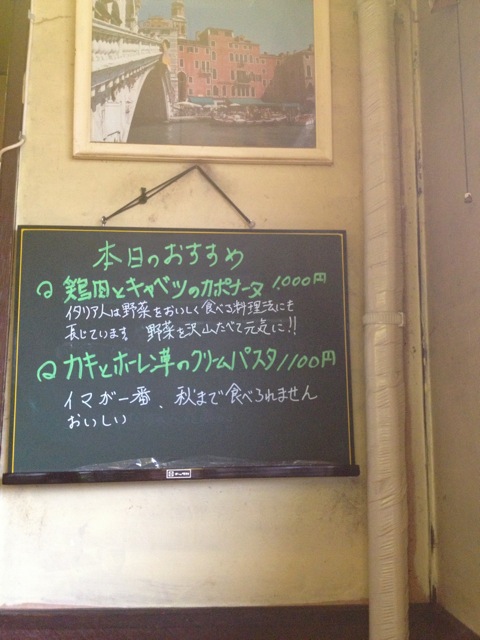 本日のおすすめ
鶏肉とキャベツのカポナータ 1.000円
イタリア人は野菜をおいしく食べる料理法にも
長じています 野菜を沢山たべて元気に!!
カキとホーレン草のクリームパスタ 1100円
イマが一番、秋まで食べられません
おいしい